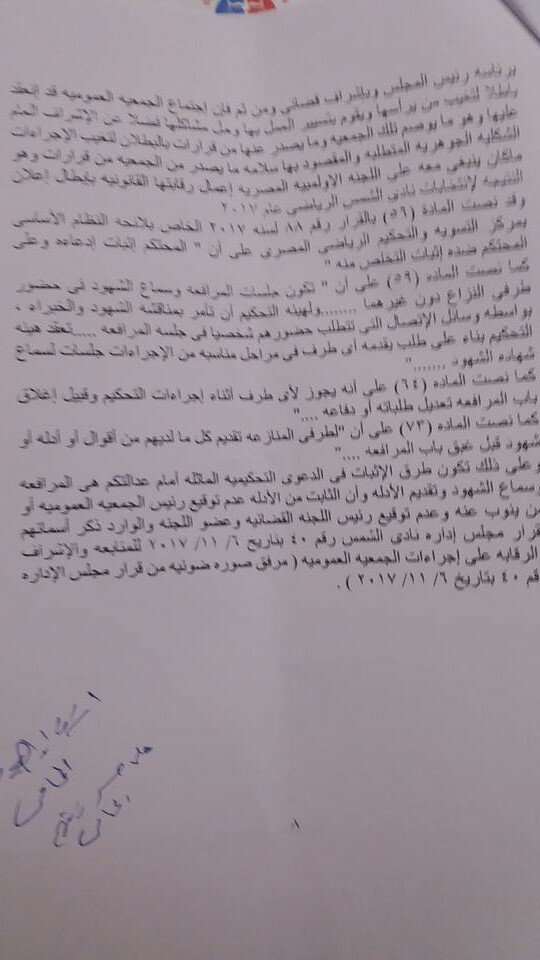 برئاسه رئيس المجلس وبإشراف قضائى ومن ثم فإن إجتماع الجمعيه العموميه قد إنعقد
باطلا لتغيب من يرأسها ويقوم بتسيير العمل بها وحل مشاكلها فضلا عن الإشراف العام
عليها وهو ما يوصم تلك الجمعيه وما يصدر عنها من قرارات بالبطلان لتغيب الإجراءات
الشكليه الجوهريه المتطلبه والمقصود بها سلامه ما يصدر من الجمعيه من قرارات وهو
ماكان ينبغى معه على اللجنه الاولمبيه المصريه إعمال رقابتها القانونيه بإبطال إعلان
النتيجه لإنتخابات نادى الشمس الرياضى عام ٢٠١٧
وقد نصت المادة (٥٦) بالقرار رقم ٨٨ لسنه ٢٠١٧ الخاص بلائحه النظام الأساسى
بمركز التسويه والتحكيم الرياضى المصرى على أن " المحتكم إثبات إدعاءه وعلى
المحتكم ضده إثبات التخلص منه "
كما نصت الماده (٥٩) على أن " تكون جلسات المرافعه وسماع الشهود فى حضور
طرفى النزاع دون غيرهما ........ولهيئه التحكيم أن تأمر بمناقشة الشهود والخبراء ـ
بواسطه وسائل الإتصال التى تتطلب حضورهم شخصيا فى جلسه المرافعه .....تعقد هيئه
التحكيم بناء على طلب يقدمه أى طرف فى مراحل مناسبه من الإجراءات جلسات لسماع
شهاده الشهود ......."
كما نصت الماده (٦٤) على أنه يجوز لأى طرف أثناء إجراءات التحكيم وقبيل إغلاق
باب المرافعه تعديل طلباته أو دفاعه ...."
كما نصت الماده (٧٣) على أن "لطرفى المنازعه تقديم كل ما لديهم من أقوال أو أدله أو
شهود قبل غيق باب المرافعه ...."
وعلى ذلك تكون طرق الإثبات فى الدعوى التحكيميه الماثله أمام عدالتكم هى المرافعه
وسماع الشهود وتقديم الأدله وأن الثابت من الأدله عدم توقيع رئيس الجمعيه العموميه أو
من ينوب عنه وعدم توقيع رئيس اللجنه القضائيه وعضو اللجنه والوارد ذكر أسمائهم
قرار مجلس إداره نادى الشمس رقم ٤٠ بتاريخ ٦/ ١١/ ٢٠١٧ للمتابعه والإشراف
الرقابه على إجراءات الجمعيه العموميه ( مرفق صوره ضوئيه من قرار مجلس الإداره
قم ٤٠ بتاريخ ٦/ ١١/ ٢٠١٧ ) .
المحامى
المحامى
٨